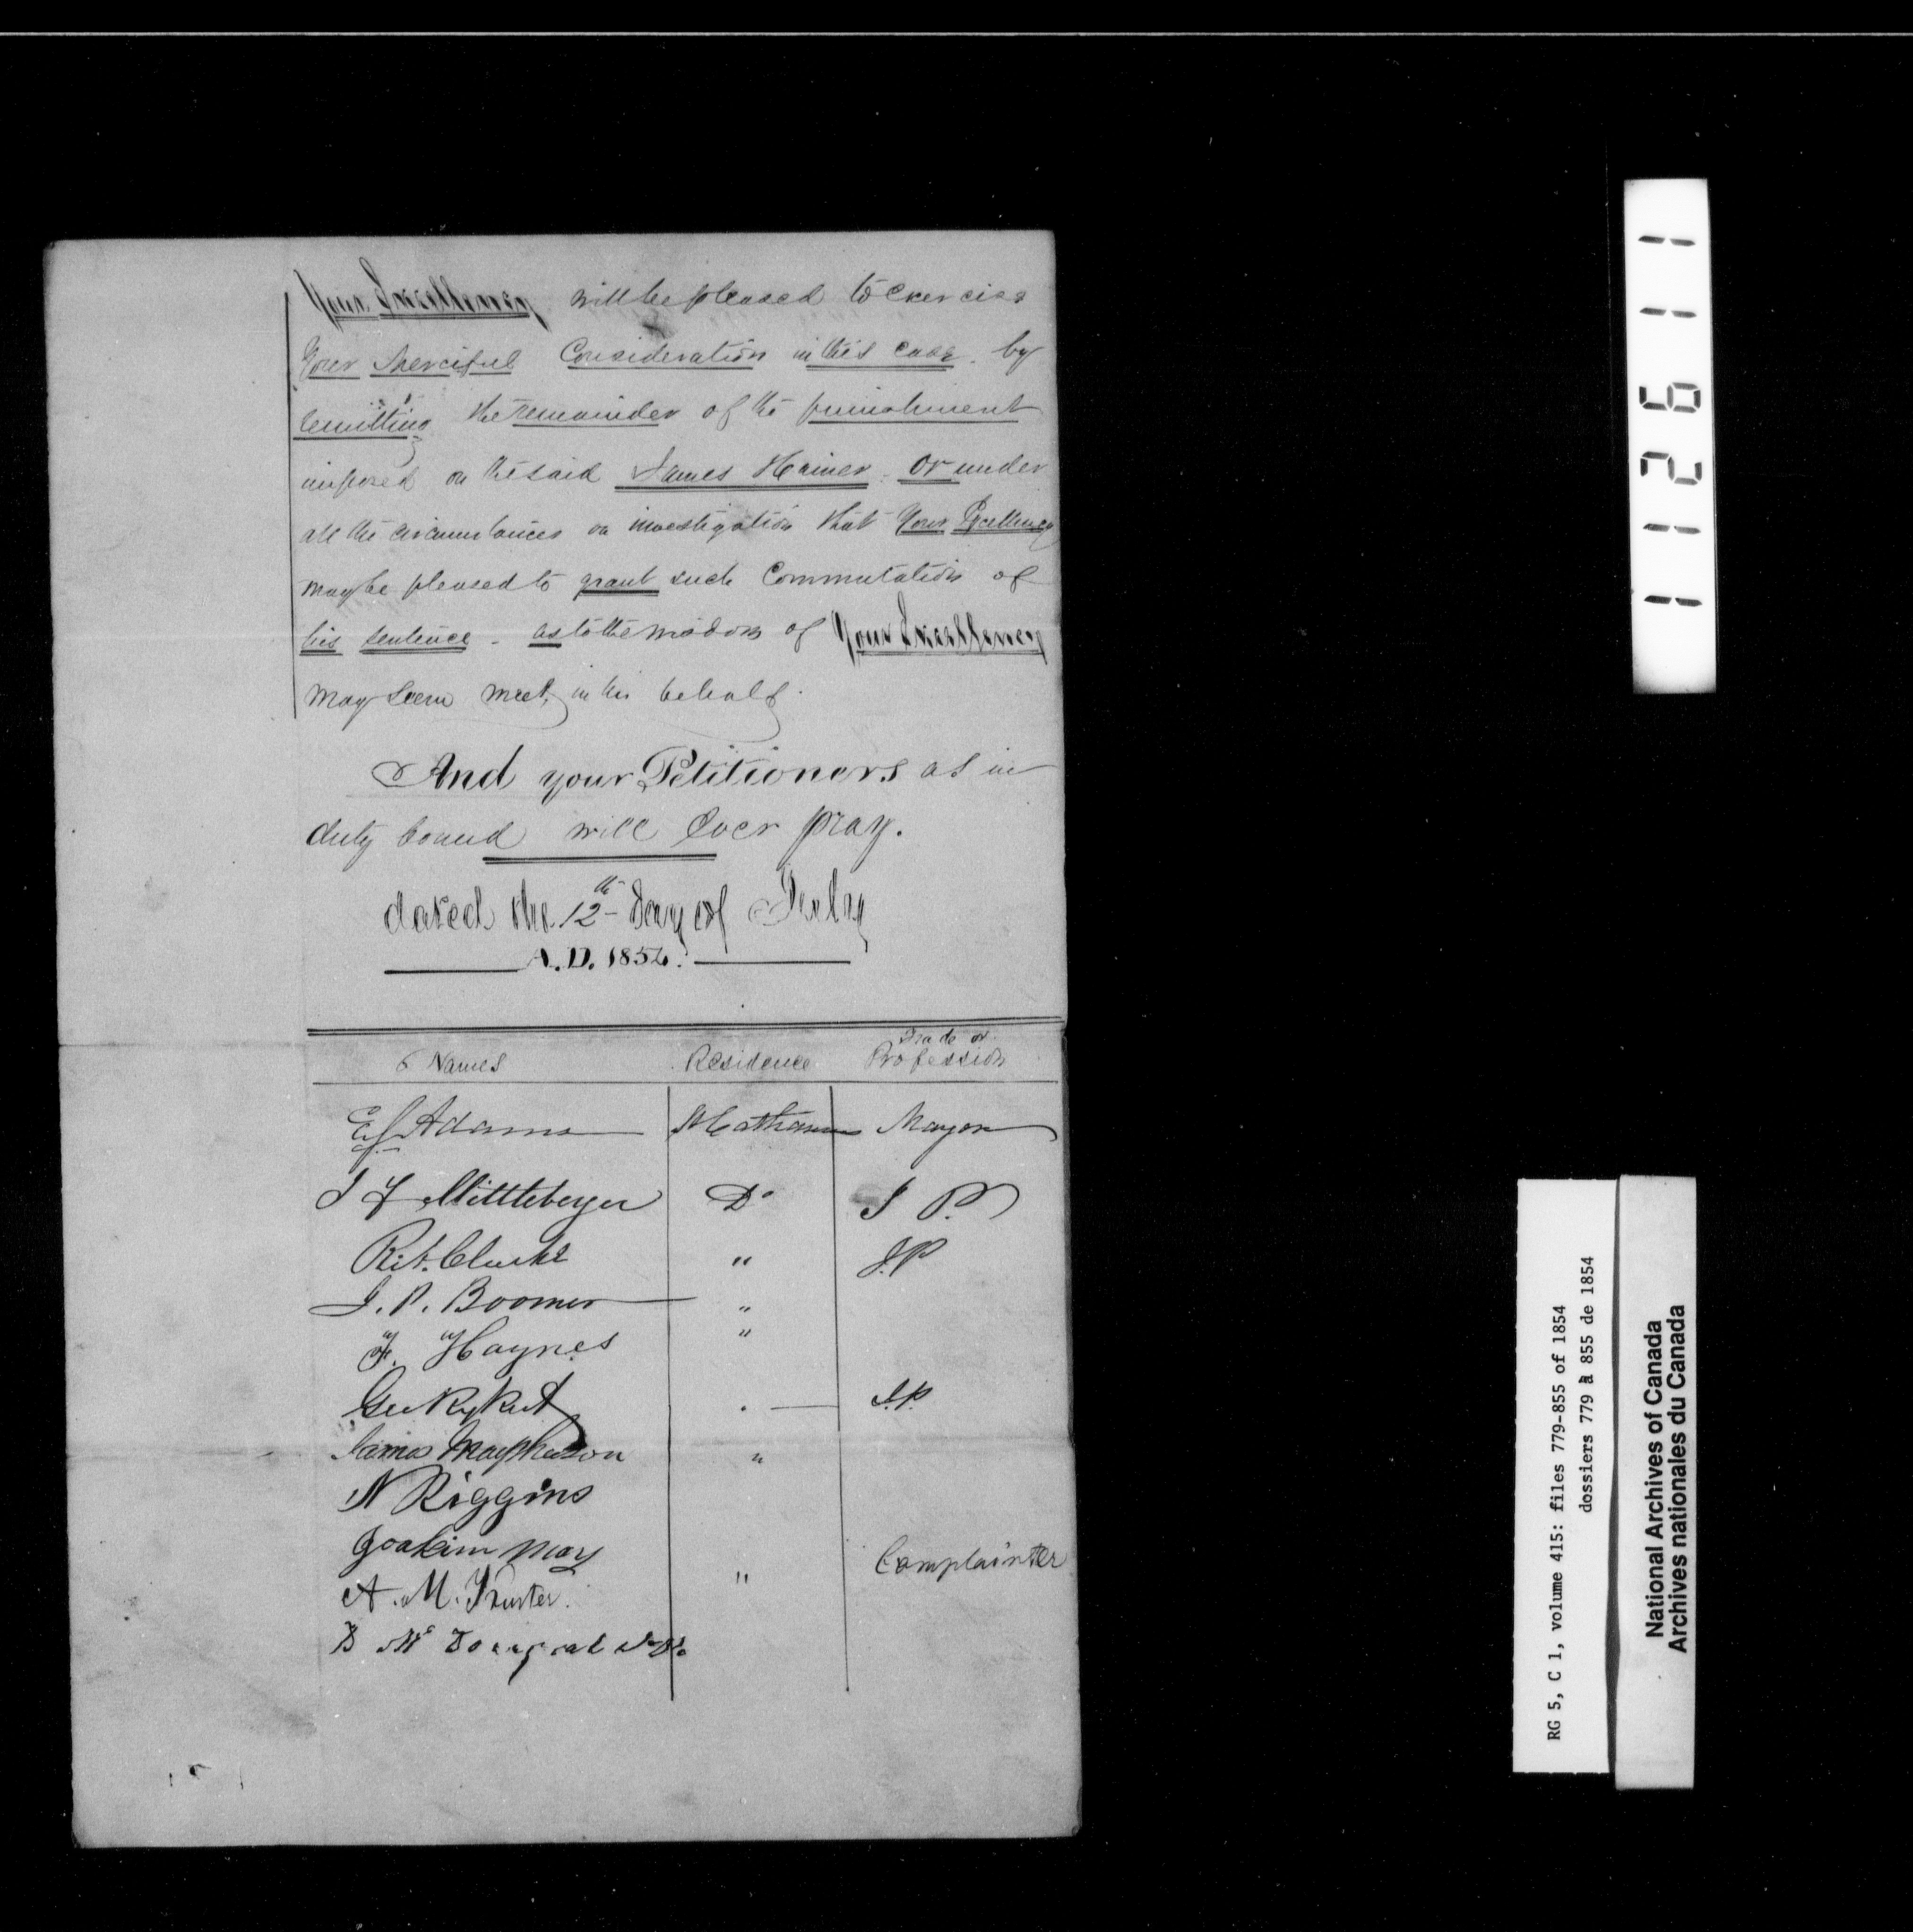 Your Excellency will be pleased to exercise
Your Merciful Consideration in this case. by
remitting the remainder of the punishment
imposed on the said James Hainer. or under
all the circumstances on investigation that Your Excellency
may be pleased to grant such Commutation of
his sentence - as to the wisdom of Your Excellency
may seem meet, in his behalf.
And your Petitioners as in
duty bound will ever pray.
dated the 12th day of July
A.D. 1854.
Names Residence Trade or Profession
E S Adams St Catharines Mayor
J F Mittleberger Do J P.
Rit. Clarke " J.P
J. P. Boomer "
F. Haynes "
Geo Rykert . J.P.
James Macpherson "
N Riggins
Joakim May
A. M. " Complainter
B Mc
1 1 2 6 1 1
RG 5, C 1, volume 415: files 779-855 of 1854
dossiers 779 à 855 de 1854
National Archives of Canada
Archives nationales du Canada